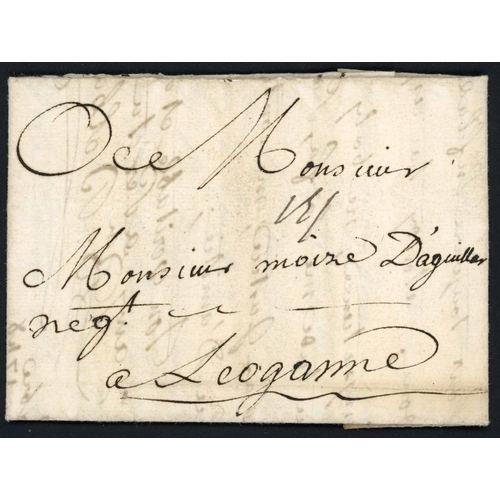 A Monsieur
Monsieur moize D'aguillar
negt.
a Leoganne